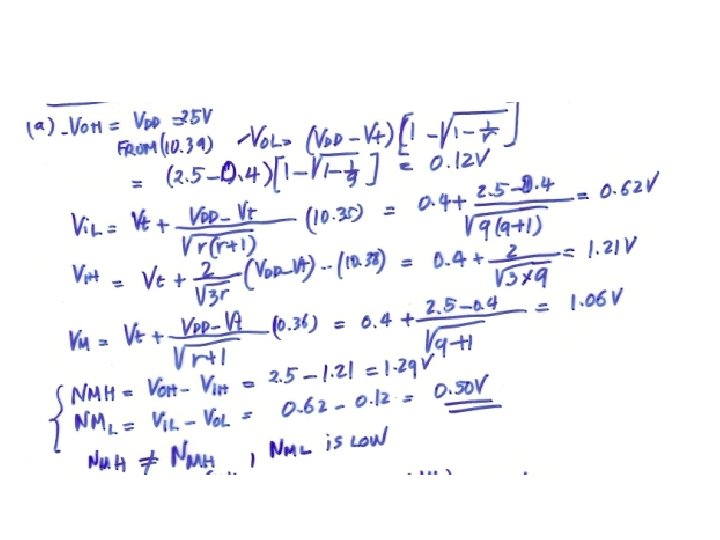 (a) - VOH = VDD = 2.5V
FROM (10.39) VOL = (VDD - Vt) [1 - √(1 - 1/r)]
= (2.5 - 0.4) [1 - √(1 - 1/9)] = 0.12V
ViL = Vt + (VDD - Vt)/√(r(r+1)) - (10.35) = 0.4 + (2.5 - 0.4)/√(9(9+1)) = 0.62V
ViH = Vt + 2/√(3r) (VDD - Vt) -- (10.38) = 0.4 + 2/√(3×9) = 1.21V
VM = Vt + (VDD - Vt)/√(r+1) (0.36) = 0.4 + (2.5 - 0.4)/√(9+1) = 1.06V
NMH = VOH - ViH = 2.5 - 1.21 = 1.29V
NML = ViL - VOL = 0.62 - 0.12 = 0.50V
NMH ≠ NMH , NML is LOW